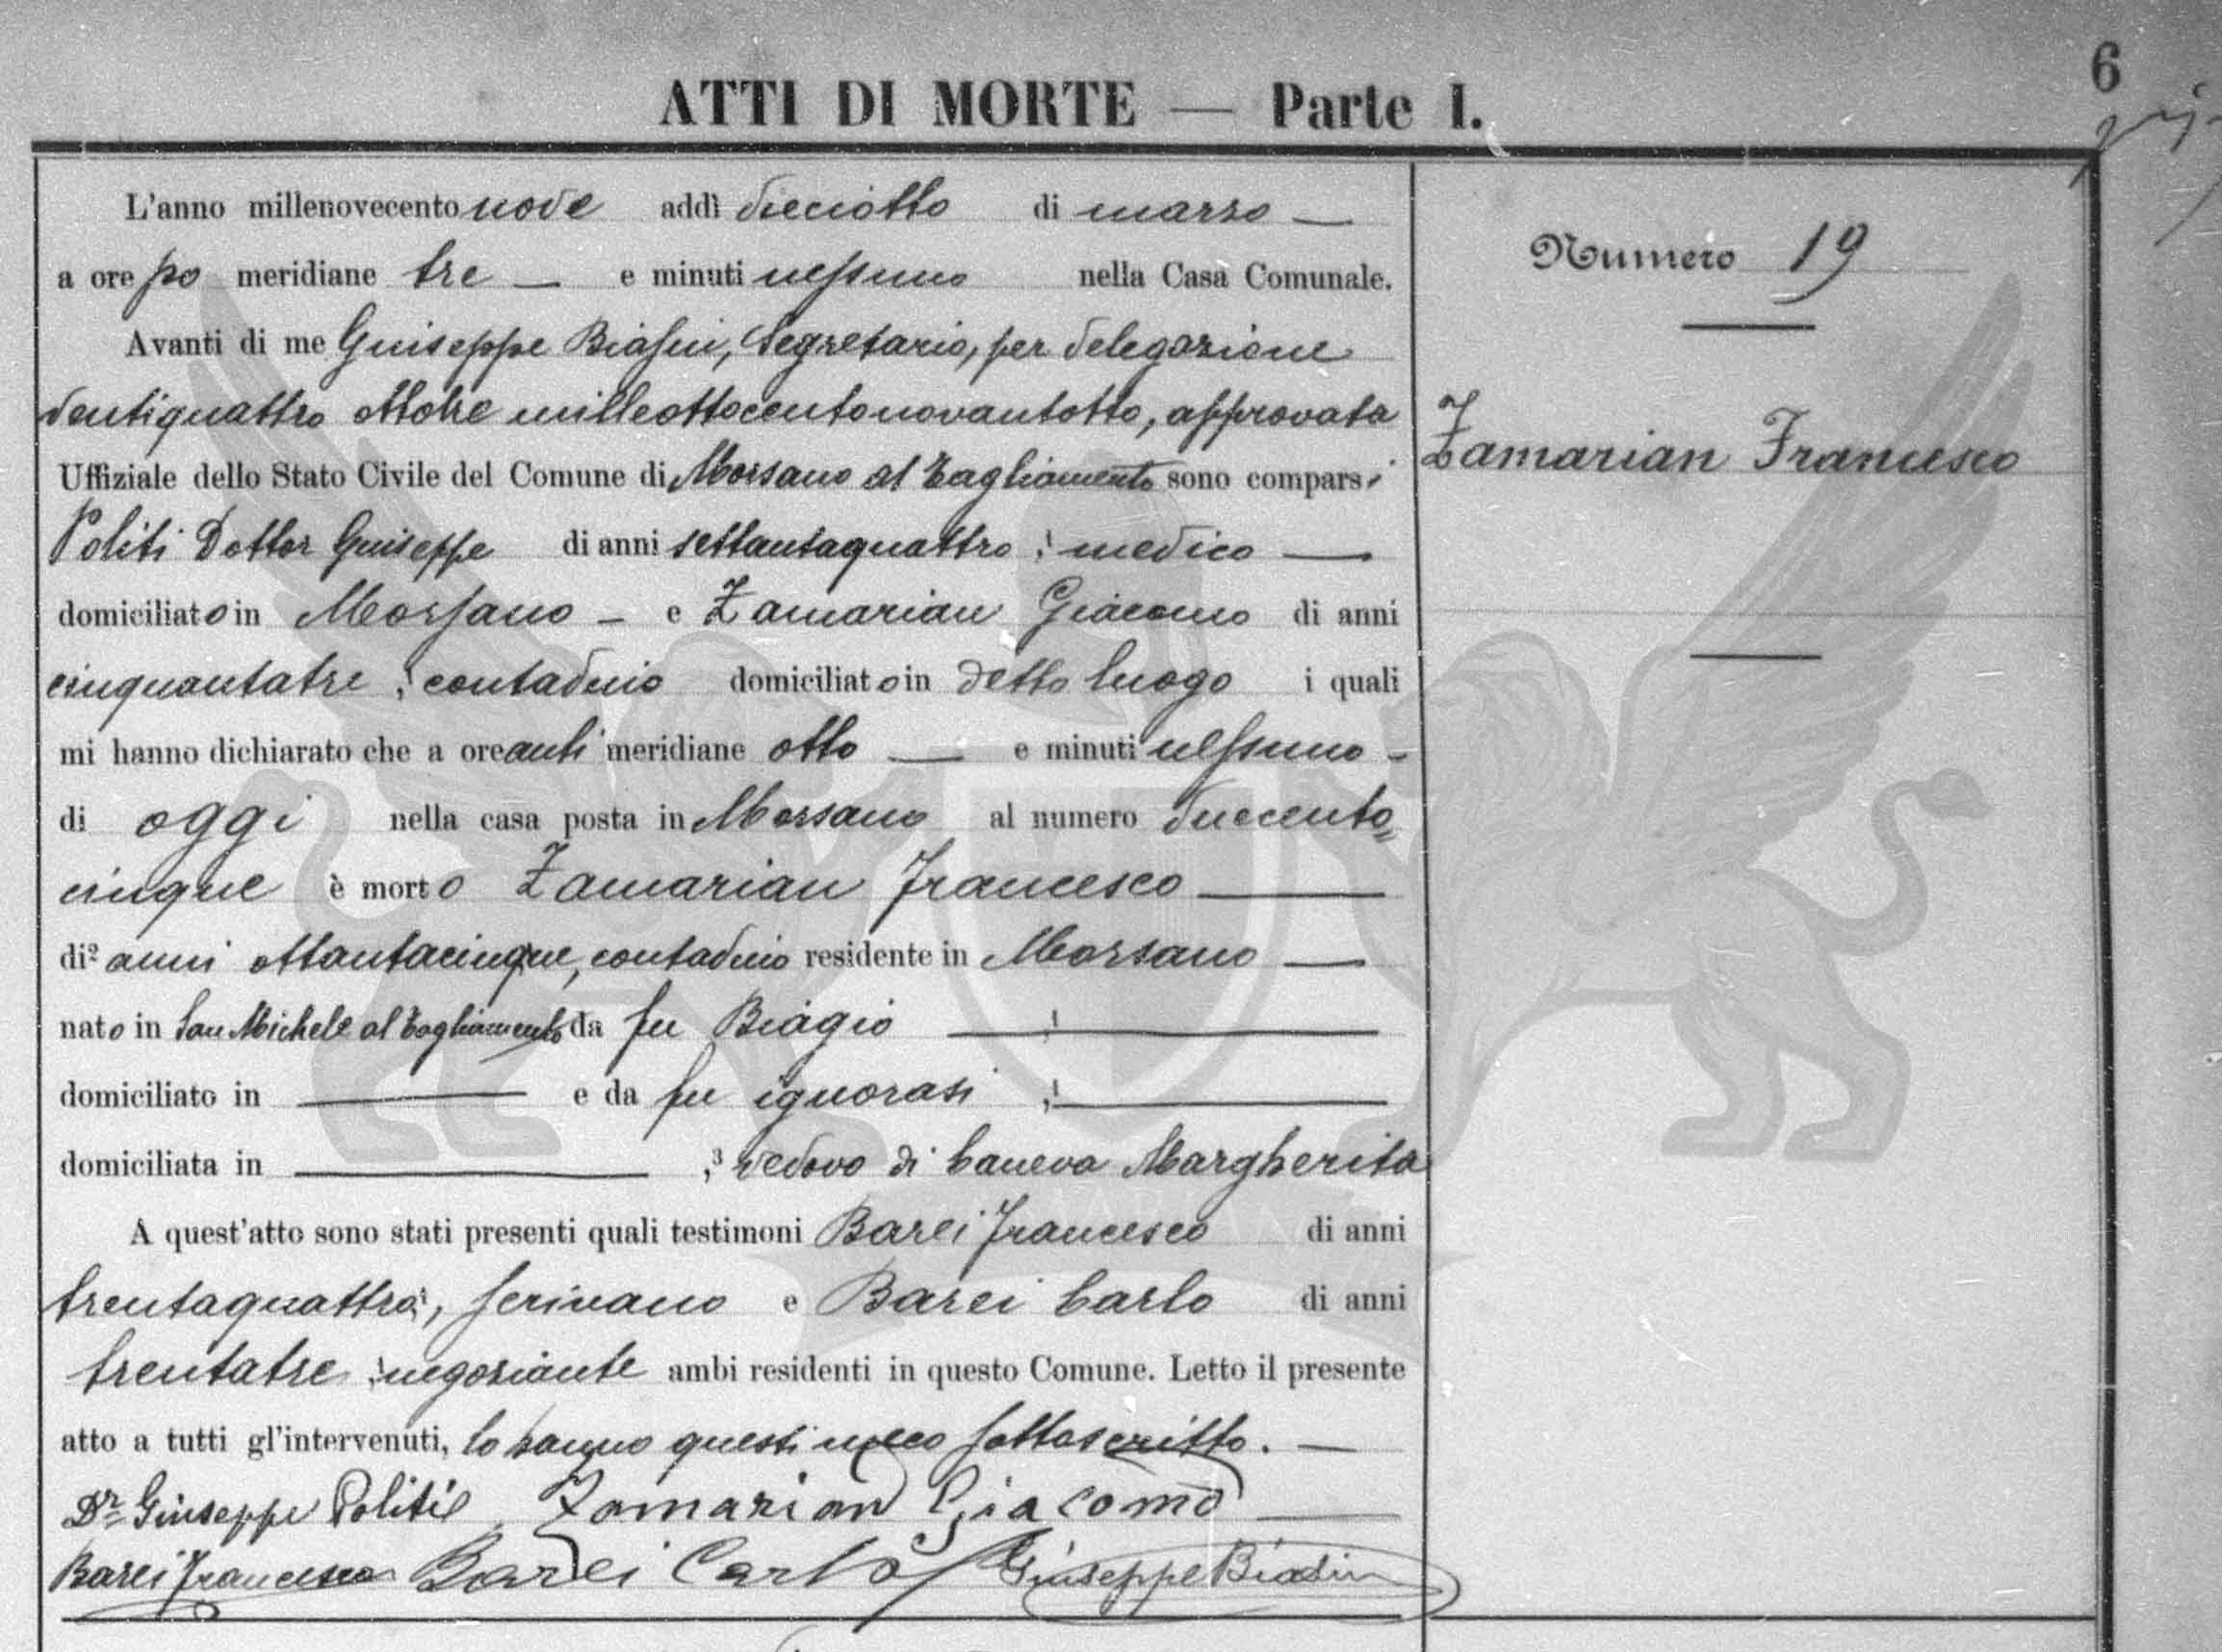 6
ATTI DI MORTE — Parte I.
L'anno millenovecento nove addì dieciotto di marzo —
a ore po meridiane tre — e minuti nessuno nella Casa Comunale.
Avanti di me Giuseppe Biasin, Segretario, per delegazione
ventiquattro ottobre milleottocentonovantotto, approvata
Uffiziale dello Stato Civile del Comune di Morsano al Tagliamento sono comparsi
Politi Dottor Giuseppe di anni settantaquattro, medico —
domiciliato in Morsano — e Zamarian Giacomo di anni
cinquantatre, contadino domiciliato in detto luogo i quali
mi hanno dichiarato che a ore anti meridiane otto — e minuti nessuno -
di oggi nella casa posta in Morsano al numero duecento=
cinque è morto Zamarian Francesco —
di² anni ottantacinque, contadino residente in Morsano —
nato in San Michele al Tagliamento da fu Biagio —
domiciliato in — e da fu ignorasi, —
domiciliata in — ,³ vedovo di Caneva Margherita
A quest'atto sono stati presenti quali testimoni Barei Francesco di anni
trentaquattro, scrivano e Barei Carlo di anni
trentatre, negoziante ambi residenti in questo Comune. Letto il presente
atto a tutti gl'intervenuti, lo hanno questi meco sottoscritto. —
Dr Giuseppe Politi Zamarian Giacomo —
Barei Francesco Barei Carlo Giuseppe Biasin
Numero 19
Zamarian Francesco